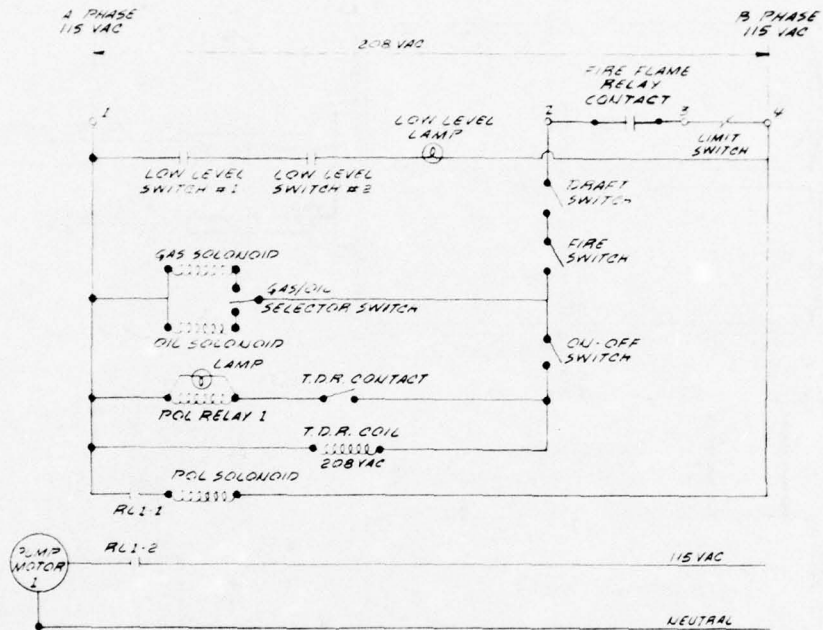 A PHASE
115 VAC
B PHASE
115 VAC
208 VAC
FIRE FLAME
RELAY
CONTACT
1
2
3
4
LOW LEVEL
LAMP
LIMIT
SWITCH
LOW LEVEL
SWITCH #1
LOW LEVEL
SWITCH #2
DRAFT
SWITCH
FIRE
SWITCH
GAS SOLONOID
GAS/OIL
SELECTOR SWITCH
OIL SOLONOID
ON-OFF
SWITCH
LAMP
T.D.R. CONTACT
POL RELAY 1
T.D.R. COIL
208 VAC
POL SOLONOID
RL1-1
PUMP
MOTOR
1
RL1-2
115 VAC
NEUTRAL